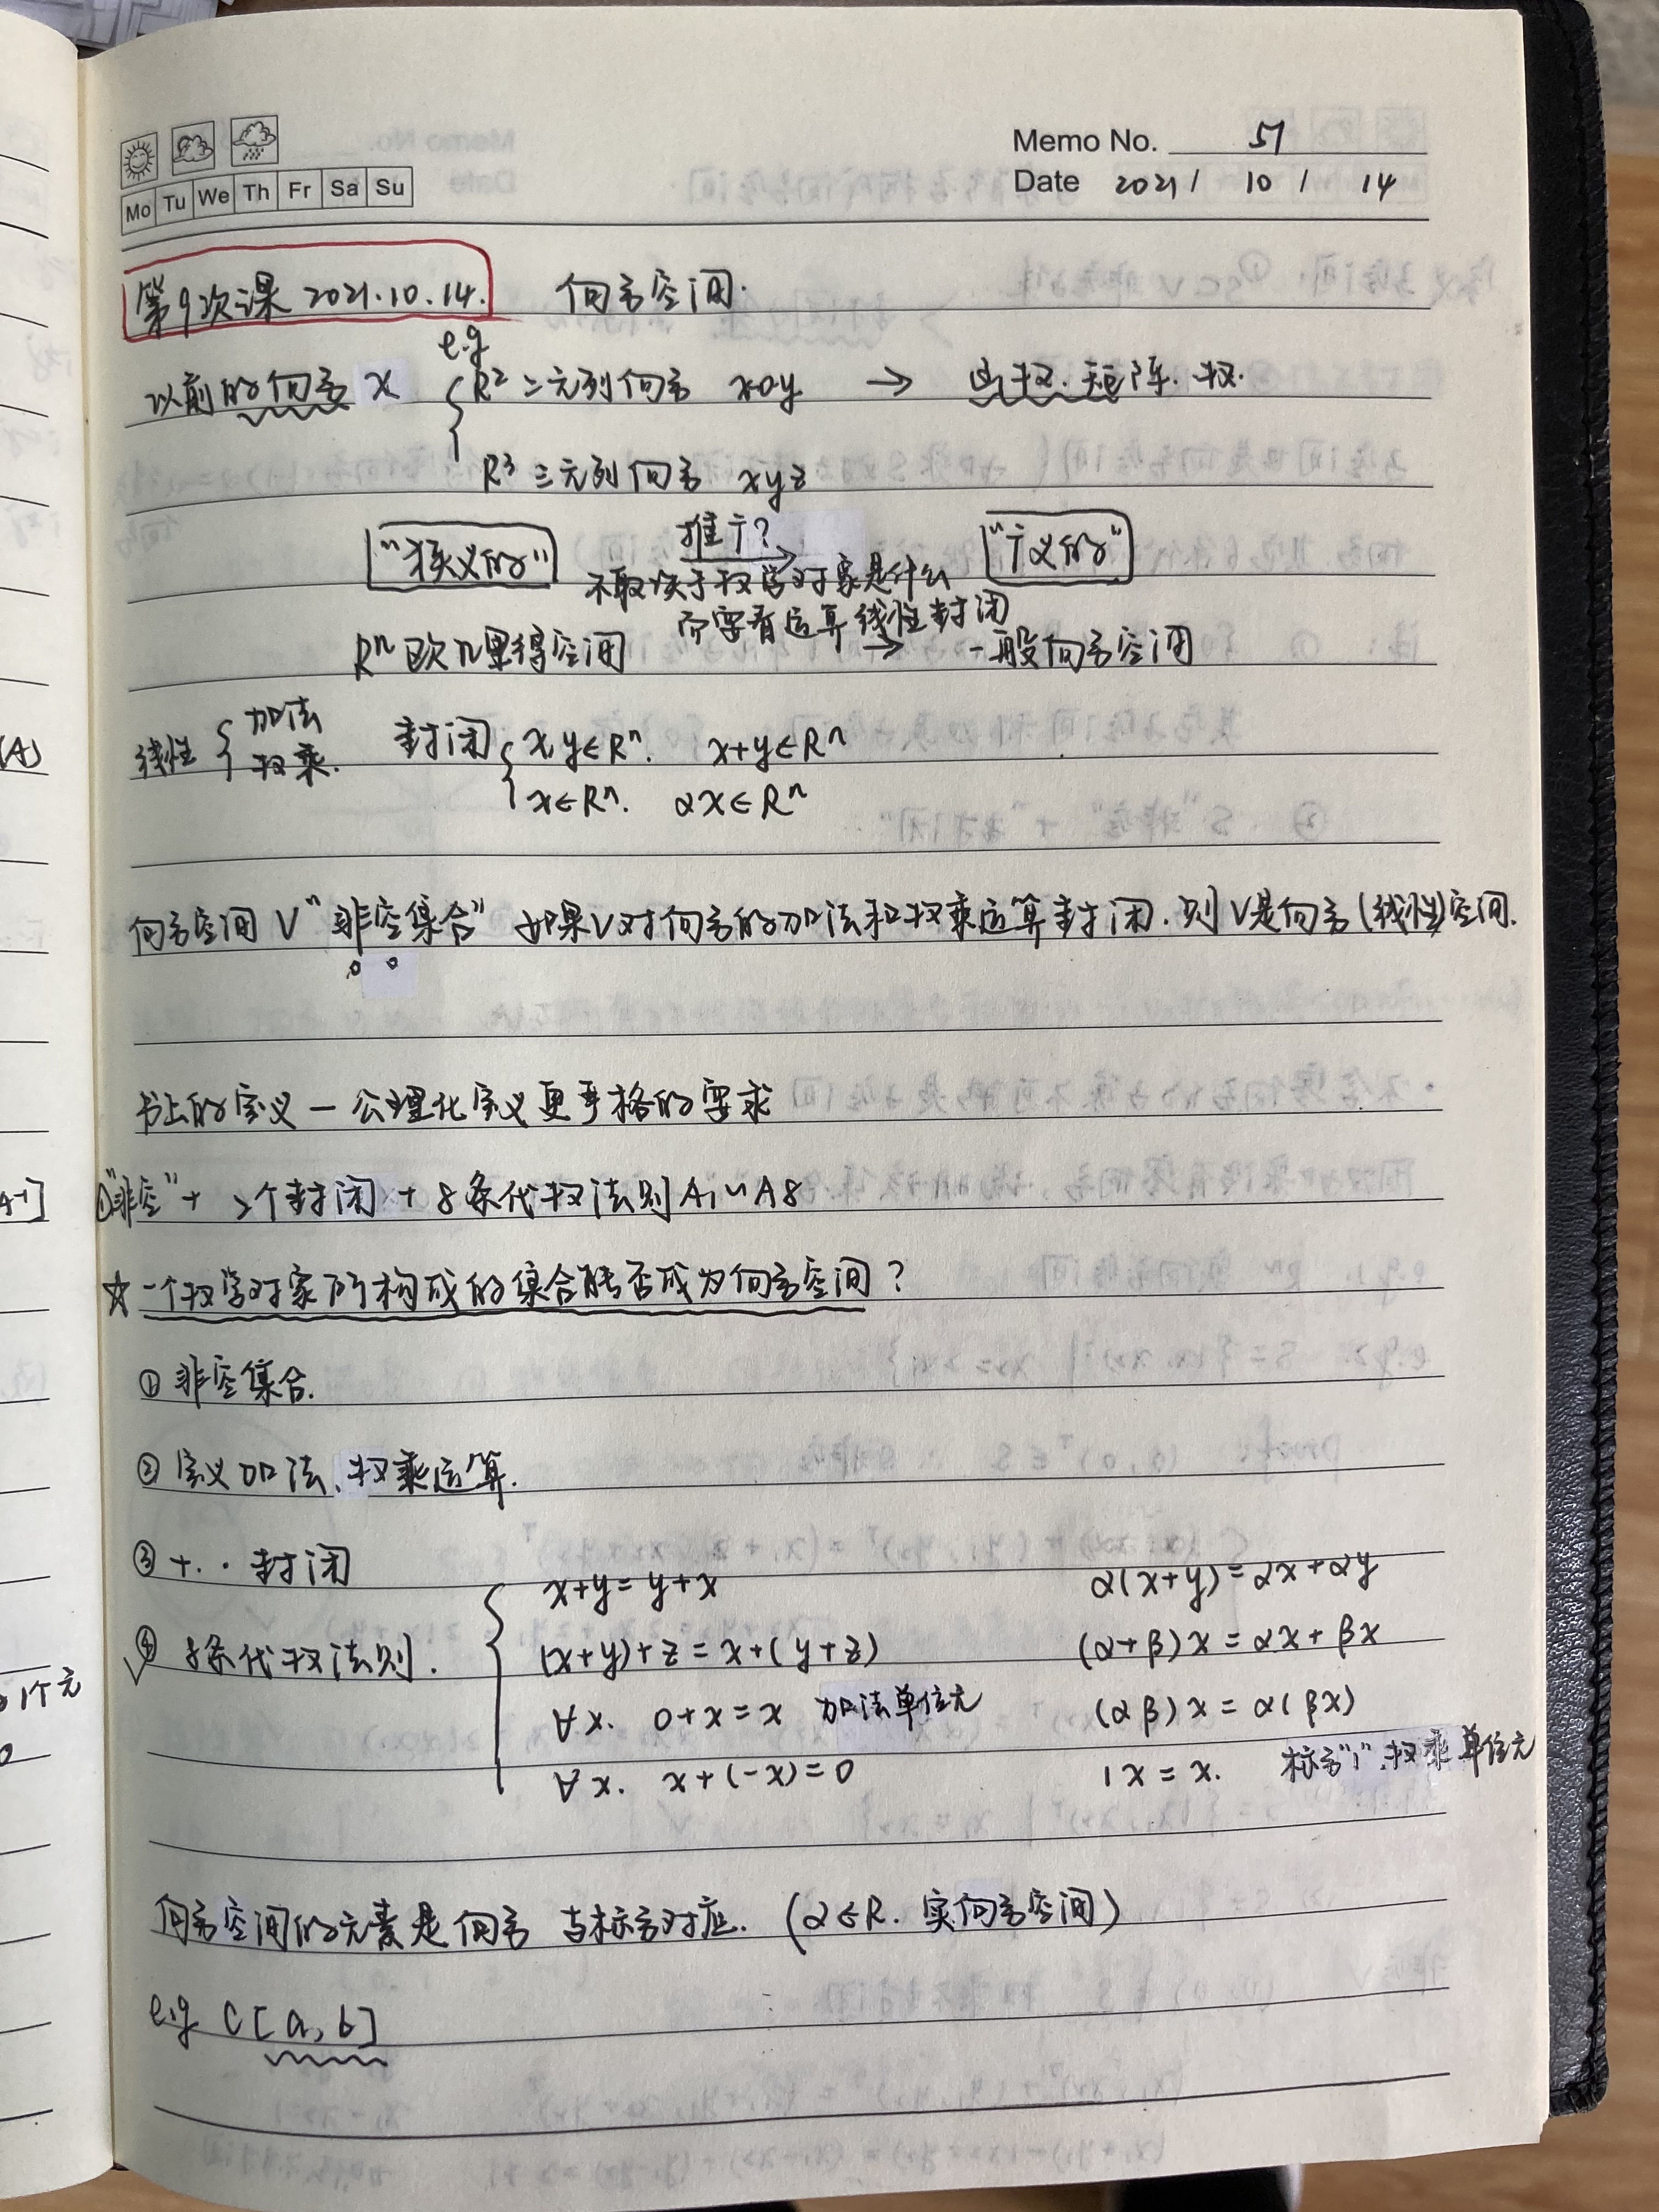 Memo No. 51
Mo Tu We Th Fr Sa Su
Date 2021 / 10 / 14
第9次课 2021.10.14. 向量空间.
e.g
以前的向量 x { R² 二元列向量 xoy → 函数. 矩阵. 数.
R³ 三元列向量 xyz
"狭义的" 推广? "广义的"
不取决于数学对象是什么
而要看运算线性封闭
Rⁿ 欧几里得空间 → 一般向量空间
线性 { 加法 封闭 { x,y∈Rⁿ. x+y∈Rⁿ
数乘. x∈Rⁿ. αx∈Rⁿ
向量空间 V "非空集合" 如果V对向量的加法和数乘运算封闭. 则V是向量(线性)空间.
书上的定义 — 公理化定义更严格的要求
①"非空" + 2个封闭 + 8条代数法则 A1~A8
☆一个数学对象所构成的集合能否成为向量空间?
① 非空集合.
② 定义加法、数乘运算.
③ +. · 封闭
④ 8条代数法则. { x+y=y+x α(x+y)=αx+αy
(x+y)+z=x+(y+z) (α+β)x=αx+βx
∀x. 0+x=x 加法单位元 (αβ)x=α(βx)
∀x. x+(-x)=0 1x=x. 标量"1". 数乘单位元
向量空间的元素是向量 与标量对应. (α∈R. 实向量空间)
e.g C[a,b]
(A)
A-1]
1个元
0